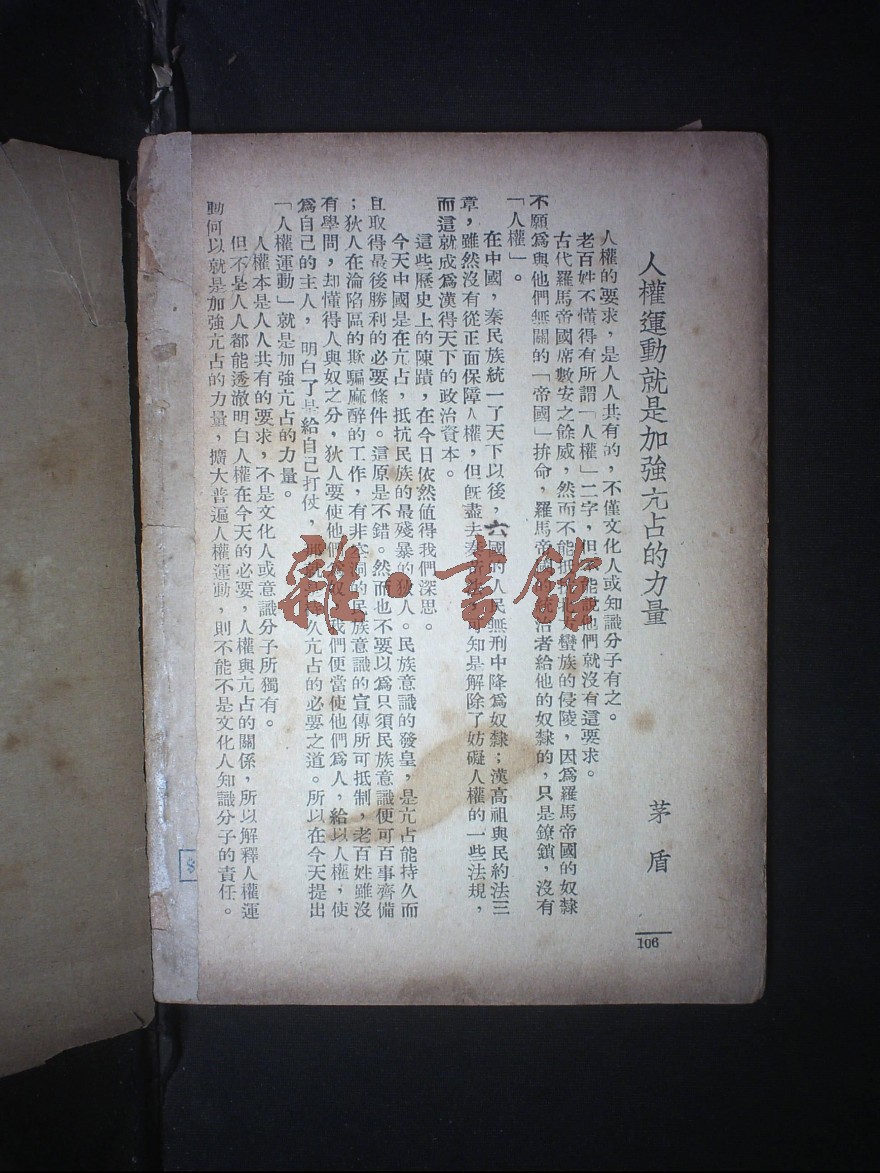 人權運動就是加強亢占的力量
茅盾
人權的要求，是人人共有的，不僅文化人或知識分子有之。
老百姓不懂得有所謂「人權」二字，但不能說他們就沒有這要求。
古代羅馬帝國席數安之餘威，然而不能抵 蠻族的侵陵，因爲羅馬帝國的奴隸
不願爲與他們無關的「帝國」拚命，羅馬帝國的統治者給他的奴隸的，只是鐐鎖，沒有
「人權」。
在中國，秦民族統一了天下以後，六國的人民無刑中降爲奴隸；漢高祖與民約法三
章，雖然沒有從正面保障人權，但旣盡去秦 可知是解除了妨礙人權的一些法規，
而這就成爲漢得天下的政治資本。
這些歷史上的陳蹟，在今日依然值得我們深思。
今天中國是在亢占，抵抗民族的最殘暴的狄人。民族意識的發皇，是亢占能持久而
且取得最後勝利的必要條件。這原是不錯。然而也不要以爲只須民族意識便可百事齊備
；狄人在淪陷區的欺騙麻醉的工作，有非空洞的民族意識的宣傳所可抵制，老百姓雖沒
有學問，却懂得人與奴之分，狄人要使他們爲奴，我們便當使他們爲人，給以人權，使
爲自己的主人，明白了是給自己打仗，那就是持久亢占的必要之道。所以在今天提出
「人權運動」就是加強亢占的力量。
人權本是人人共有的要求，不是文化人或意識分子所獨有。
但不是人人都能透澈明白人權在今天的必要，人權與亢占的關係，所以解釋人權運
動何以就是加強亢占的力量，擴大普遍人權運動，則不能不是文化人知識分子的責任。
106
雜·書館